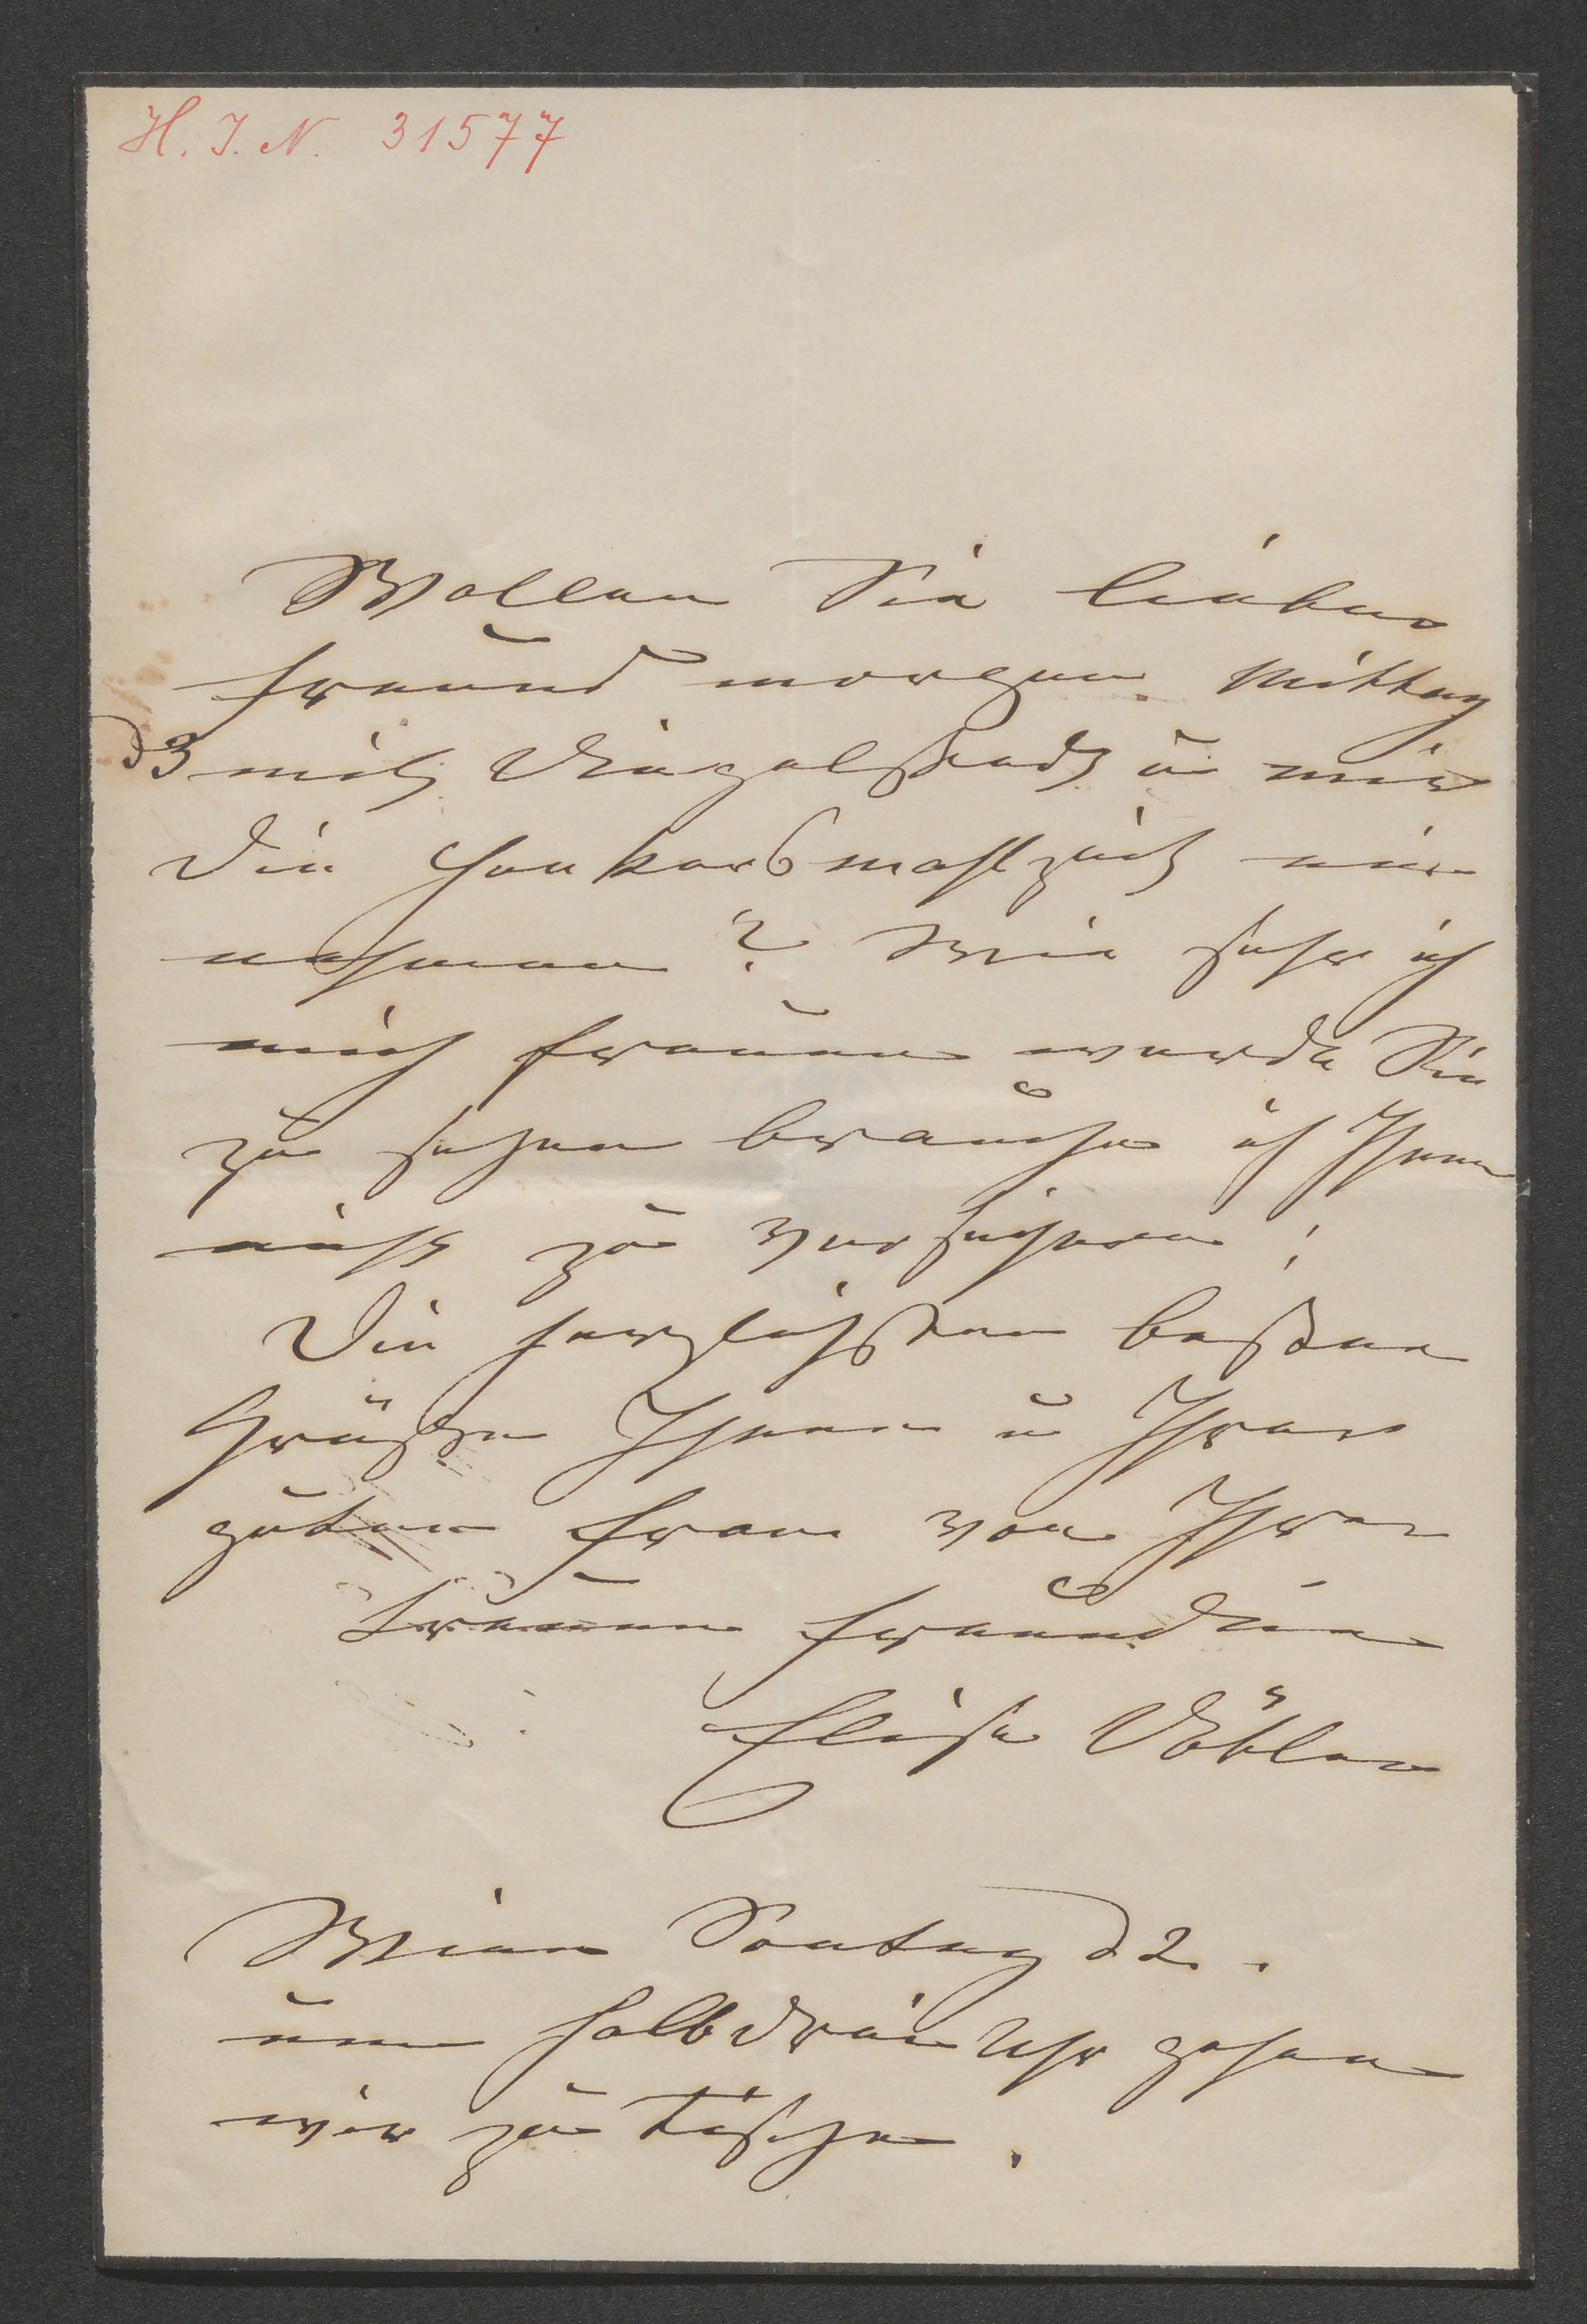 H. I. N. 31577
Wollen Sie lieber
Freund morgen Mittag
d 3 mit Dingelstedt u mir
die Henkersmahlzeit ein
nehmen? Wie sehr ich
mich freuen werde Sie
zu sehen brauche ich Ihnen
nicht zu versichern!
Die herzlichsten besten
Grüße Ihnen u Ihrer
guten Frau von Ihrer
treuen Freundin
Elise
Wien Sontag d 2.
um halb drei Uhr gehen
wir zu Tische.